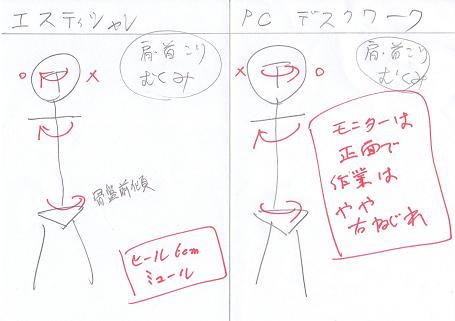 エスティシャン
肩・首こり
むくみ
O
X
骨盤前傾
ヒール6cm
ミュール
PC デスクワーク
肩・首こり
むくみ
X
O
モニターは
正面で
作業は
やや
右ねじれ